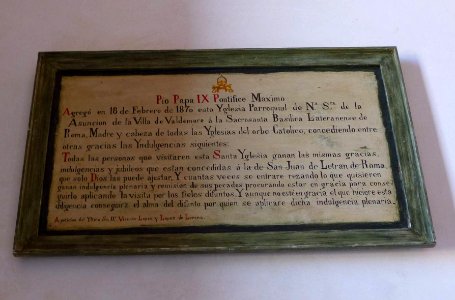 Pio Papa IX Pontifice Maximo
Agregó en 18 de Febrero de 1870 esta Yglesia Parroquial de Nª Sra. de la
Asuncion de la Villa de Valdemoro á la Sacrosanta Basilica Lateranense de
Roma, Madre y cabeza de todas las Yglesias del orbe Catolico, concediendo entre
otras gracias las Yndulgencias siguientes:
Todas las personas que visitaren esta Santa Yglesia ganan las mismas gracias,
indulgencias y jubileos que estan concedidas á la de San Juan de Letran de Roma,
que solo Dios las puede ajustar. Y cuantas veces se entrare rezando lo que quisieren
ganan indulgencia plenaria y remision de sus pecados procurando estar en gracia para con-
seguirlo aplicando la visita por los fieles difuntos. Y aunque no esté en gracia el que hiciere esta
diligencia conseguirá el alma del difunto por quien se aplicare dicha indulgencia plenaria.
A peticion de Lopez y Lopez de